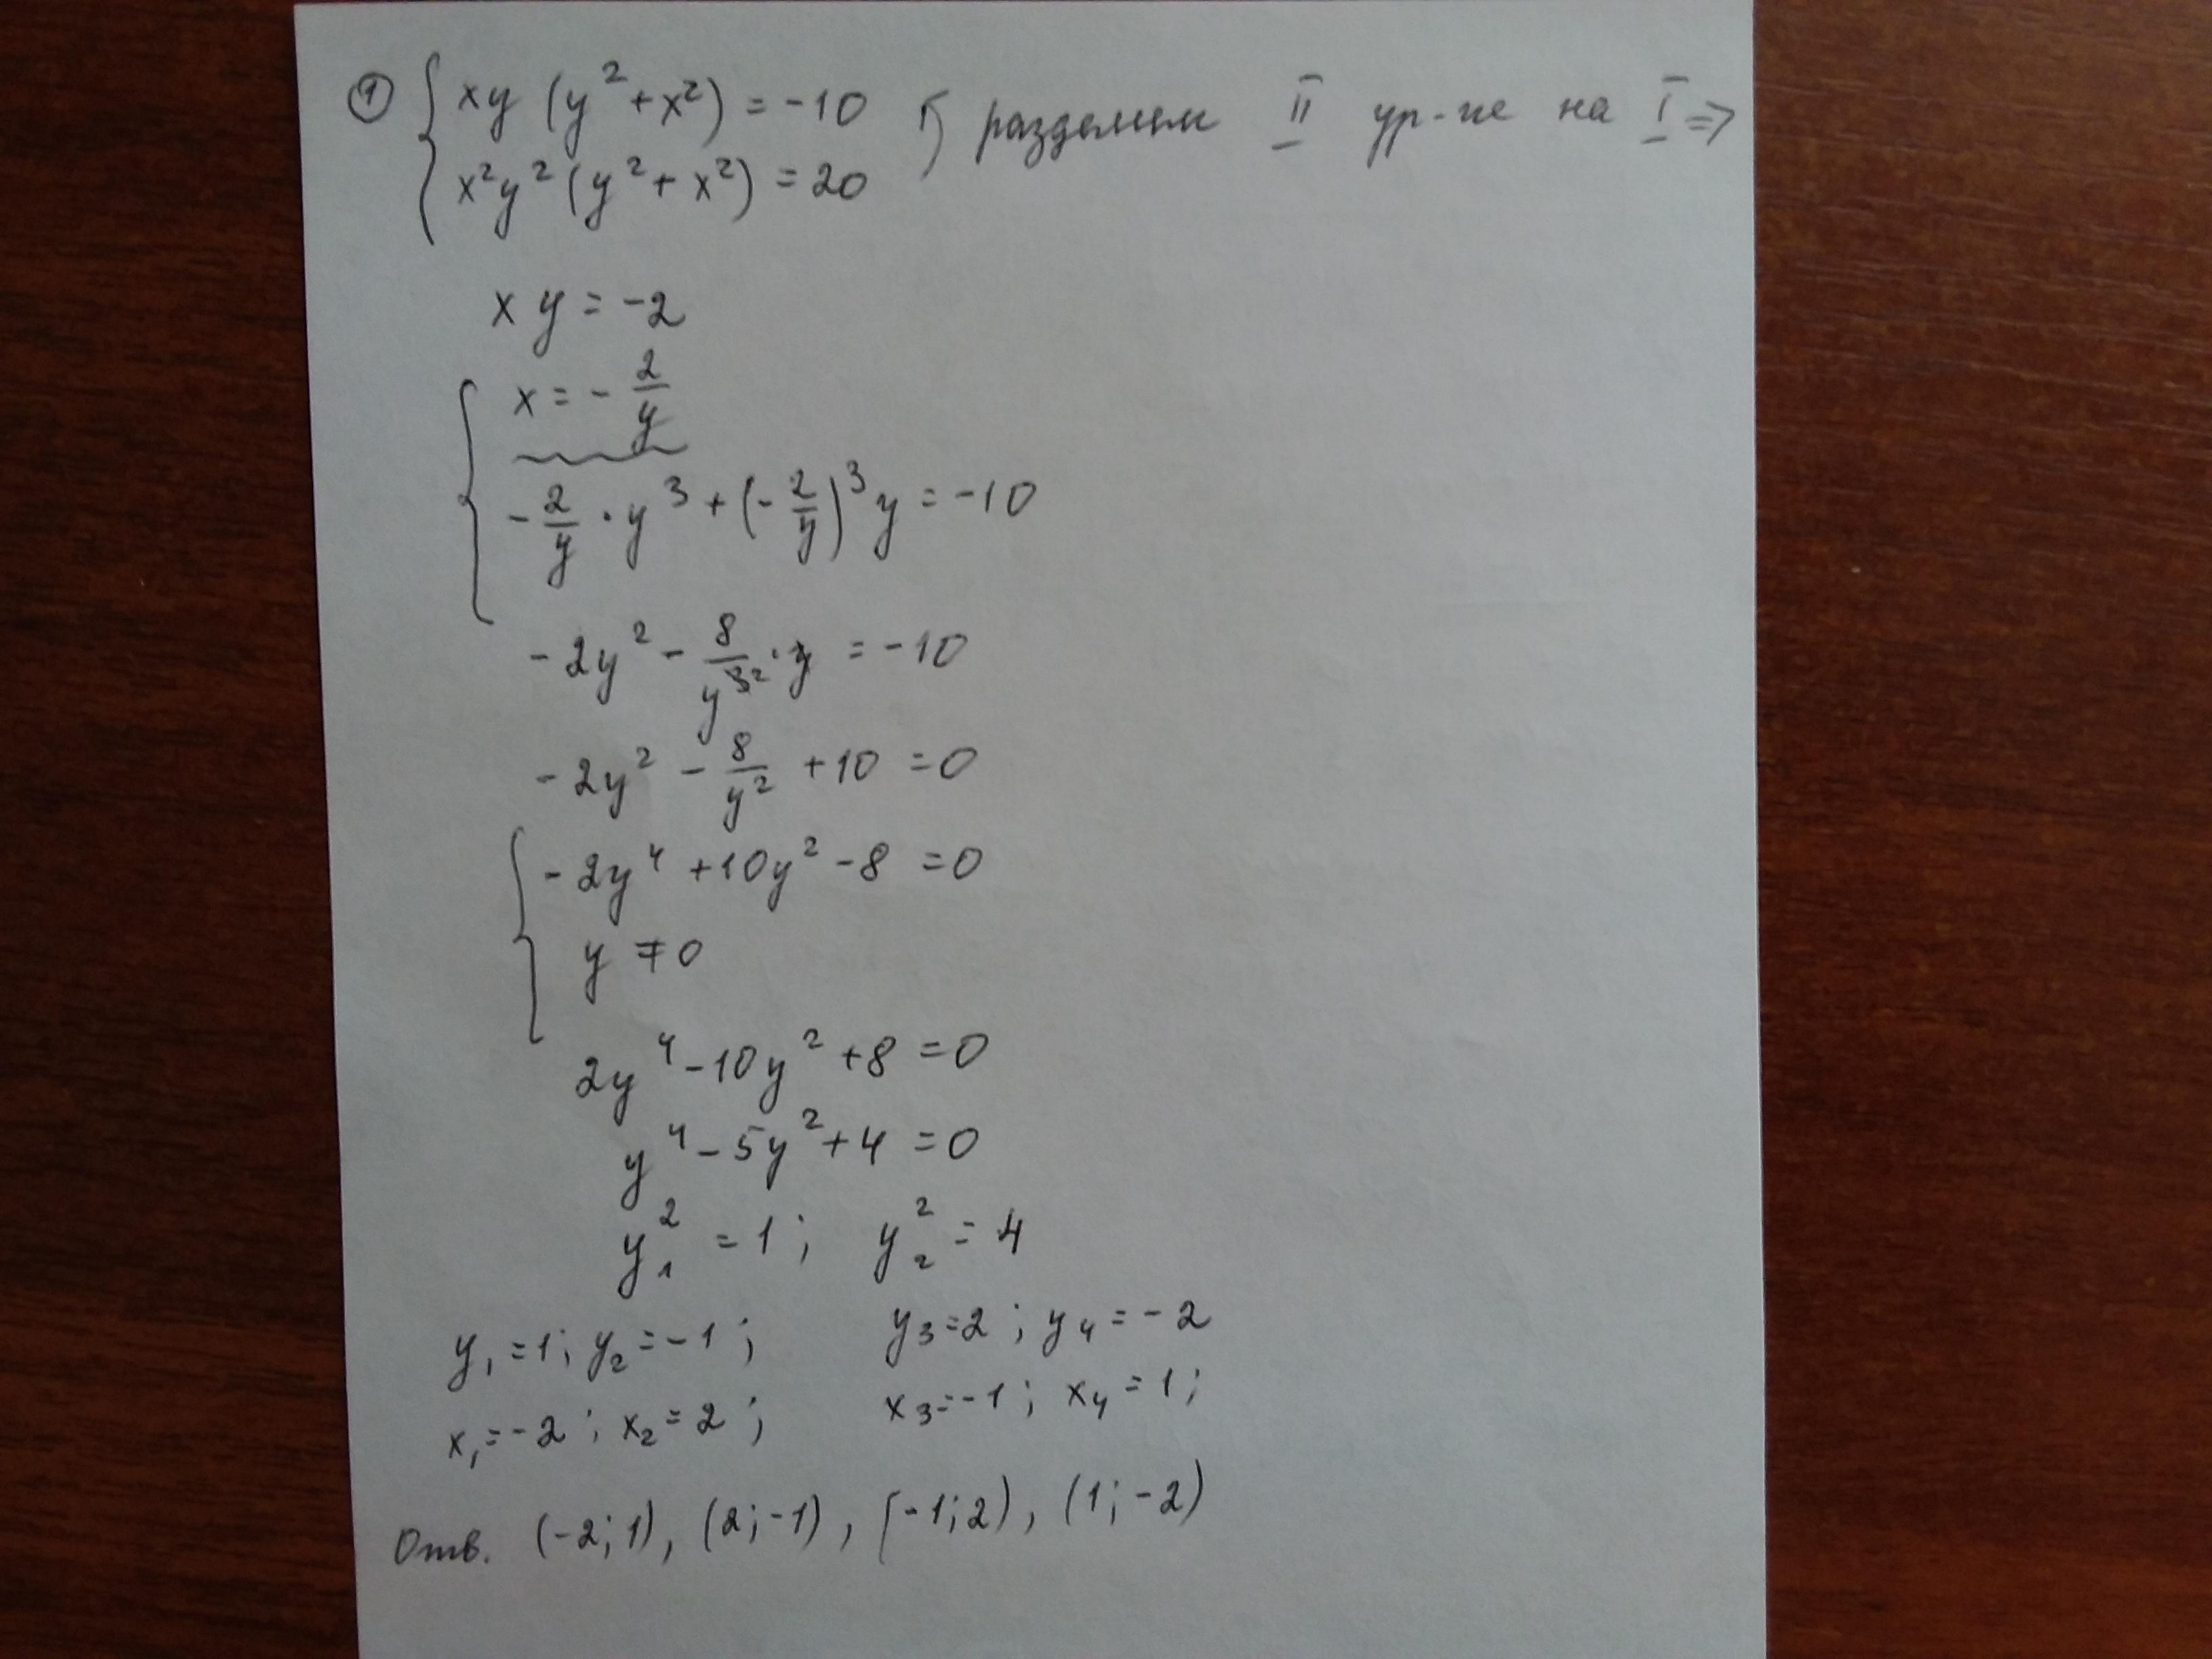 ① { xy (y² + x²) = -10 | разделим II ур-ие на I ⇒
x²y² (y² + x²) = 20
xy = -2
{ x = - 2/y
- 2/y · y³ + (- 2/y)³ y = -10
-2y² - 8/y³² · y = -10
-2y² - 8/y² + 10 = 0
{ -2y⁴ + 10y² - 8 = 0
y ≠ 0
2y⁴ - 10y² + 8 = 0
y⁴ - 5y² + 4 = 0
y₁² = 1; y₂² = 4
y₁ = 1; y₂ = -1; y₃ = 2; y₄ = -2
x₁ = -2; x₂ = 2; x₃ = -1; x₄ = 1;
Отв. (-2; 1), (2; -1), (-1; 2), (1; -2)